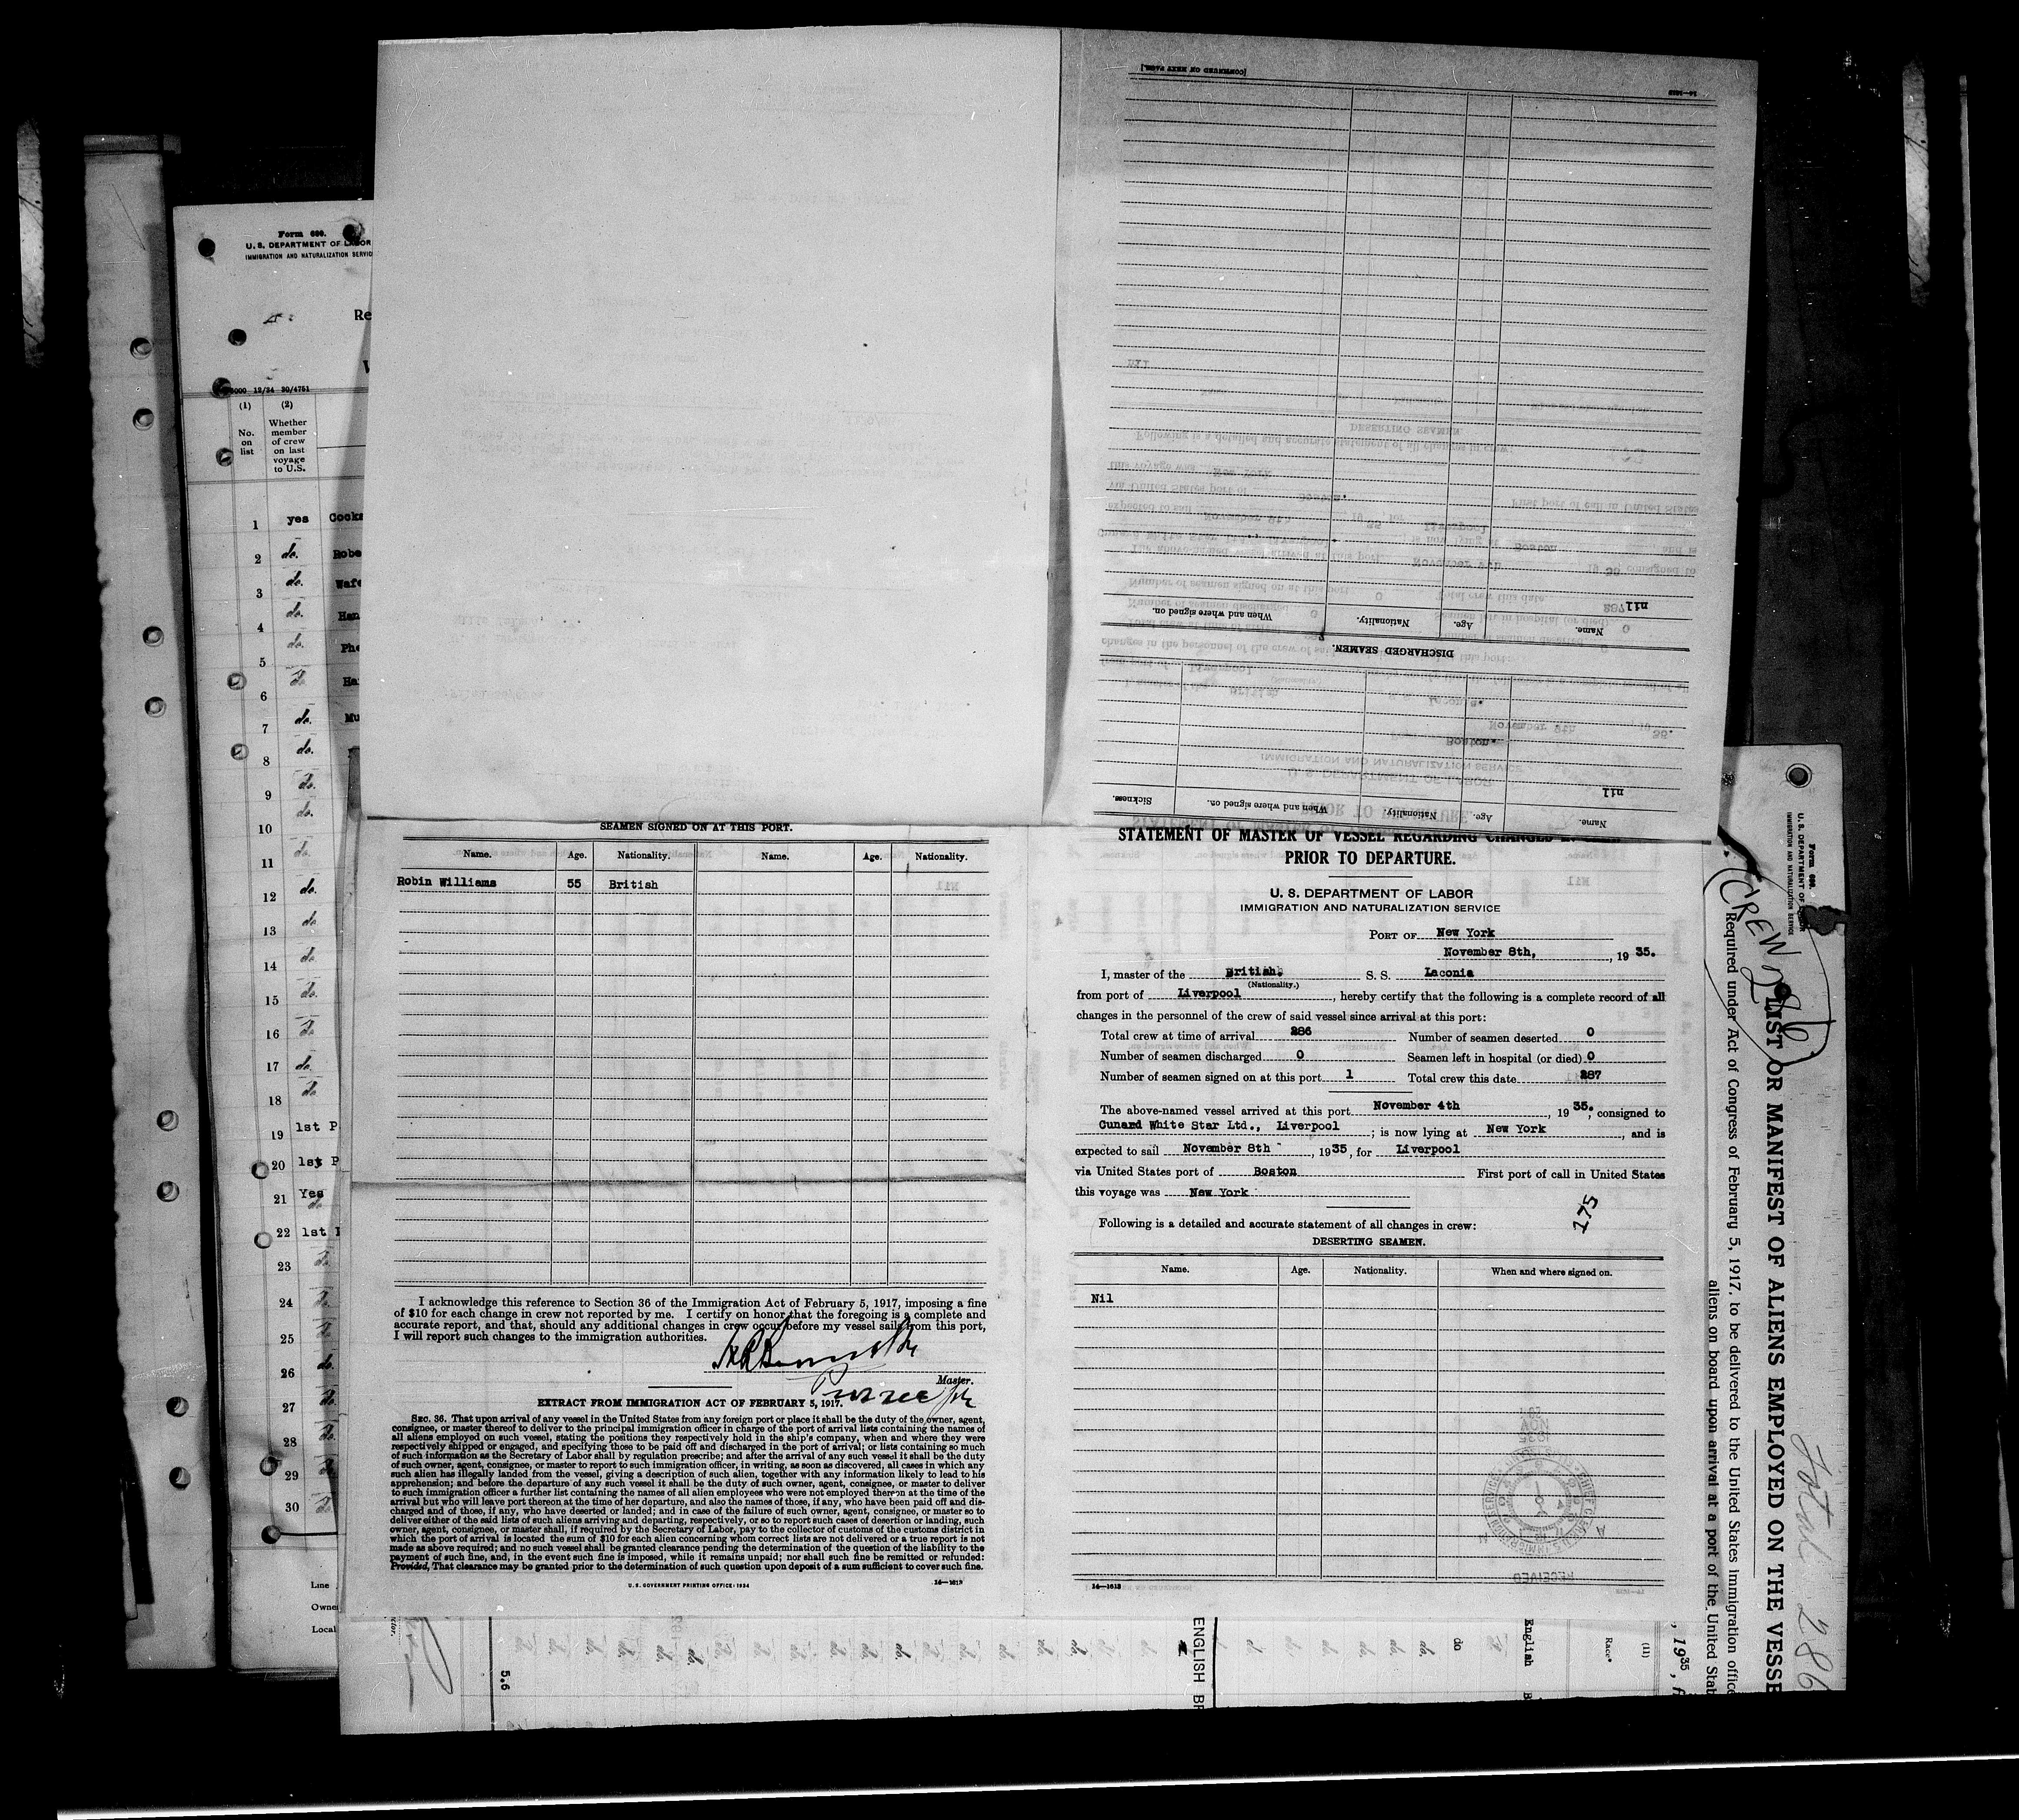 Form 690.
U. S. DEPARTMENT OF LABOR
IMMIGRATION AND NATURALIZATION SERVIC
Re
5000 12/34 20/4751
(1) (2)
No. on list
Whether member of crew on last voyage to U.S.
1 yes Cocks
2 do. Robe
3 do. Wafe
4 do. Han
5 do. Phe
6 do Ha
7 do. Mu
8 do.
9 do.
10 do.
11 do.
12 do.
13 do
14 do.
15 do.
16 do
17 do.
18 do
19 1st P
20 1st P
21 Yes do.
22 1st
23 do
24 do
25 do
26 do.
27 do.
28 do.
29 do
30 do
Line
Owne
Local
[CONTINUED ON NEXT PAGE.]
14—1613
Name. Age. Nationality. When and where signed on.
nil
DISCHARGED SEAMEN.
Name. Age. Nationality. When and where signed on. Sickness.
nil
SEAMEN SIGNED ON AT THIS PORT.
Name. Age. Nationality. Name. Age. Nationality.
Robin Williams 55 British
I acknowledge this reference to Section 36 of the Immigration Act of February 5, 1917, imposing a fine
of $10 for each change in crew not reported by me. I certify on honor that the foregoing is a complete and
accurate report, and that, should any additional changes in crew occur before my vessel sails from this port,
I will report such changes to the immigration authorities.
Master.
EXTRACT FROM IMMIGRATION ACT OF FEBRUARY 5, 1917.
SEC. 36. That upon arrival of any vessel in the United States from any foreign port or place it shall be the duty of the owner, agent,
consignee, or master thereof to deliver to the principal immigration officer in charge of the port of arrival lists containing the names of
all aliens employed on such vessel, stating the positions they respectively hold in the ship's company, when and where they were
respectively shipped or engaged, and specifying those to be paid off and discharged in the port of arrival; or lists containing so much
of such information as the Secretary of Labor shall by regulation prescribe; and after the arrival of any such vessel it shall be the duty
of such owner, agent, consignee, or master to report to such immigration officer, in writing, as soon as discovered, all cases in which any
such alien has illegally landed from the vessel, giving a description of such alien, together with any information likely to lead to his
apprehension; and before the departure of any such vessel it shall be the duty of such owner, agent, consignee, or master to deliver
to such immigration officer a further list containing the names of all alien employees who were not employed thereon at the time of the
arrival but who will leave port thereon at the time of her departure, and also the names of those, if any, who have been paid off and dis-
charged and of those, if any, who have deserted or landed; and in case of the failure of such owner, agent, consignee, or master so to
deliver either of the said lists of such aliens arriving and departing, respectively, or so to report such cases of desertion or landing, such
owner, agent, consignee, or master shall, if required by the Secretary of Labor, pay to the collector of customs of the customs district in
which the port of arrival is located the sum of $10 for each alien concerning whom correct lists are not delivered or a true report is not
made as above required; and no such vessel shall be granted clearance pending the determination of the question of the liability to the
payment of such fine, and, in the event such fine is imposed, while it remains unpaid; nor shall such fine be remitted or refunded:
Provided, That clearance may be granted prior to the determination of such question upon deposit of a sum sufficient to cover such fine.
U. S. GOVERNMENT PRINTING OFFICE: 1934 14—1613
STATEMENT OF MASTER OF VESSEL REGARDING CHANGES
PRIOR TO DEPARTURE.
U. S. DEPARTMENT OF LABOR
IMMIGRATION AND NATURALIZATION SERVICE
PORT OF New York
November 8th, , 19 35.
I, master of the British S. S. Laconia
(Nationality.)
from port of Liverpool , hereby certify that the following is a complete record of all
changes in the personnel of the crew of said vessel since arrival at this port:
Total crew at time of arrival 286 Number of seamen deserted 0
Number of seamen discharged 0 Seamen left in hospital (or died) 0
Number of seamen signed on at this port 1 Total crew this date 287
The above-named vessel arrived at this port November 4th , 19 35, consigned to
Cunard White Star Ltd., Liverpool ; is now lying at New York , and is
expected to sail November 8th , 1935, for Liverpool
via United States port of Boston First port of call in United States
this voyage was New York
175
Following is a detailed and accurate statement of all changes in crew:
DESERTING SEAMEN.
Name. Age. Nationality. When and where signed on.
Nil
14—1613
RECEIVED
Form 690.
U. S. DEPARTMENT OF
IMMIGRATION AND NATURALIZATION SERVICE
CREW
LIST OR MANIFEST OF ALIENS EMPLOYED ON THE VESSE
Required under Act of Congress of February 5, 1917, to be delivered to the United States immigration office
aliens on board upon arrival at a port of the United Stat
Total 286
, 1935, f
(11)
Race*
English B
do
ENGLISH BR
5.6